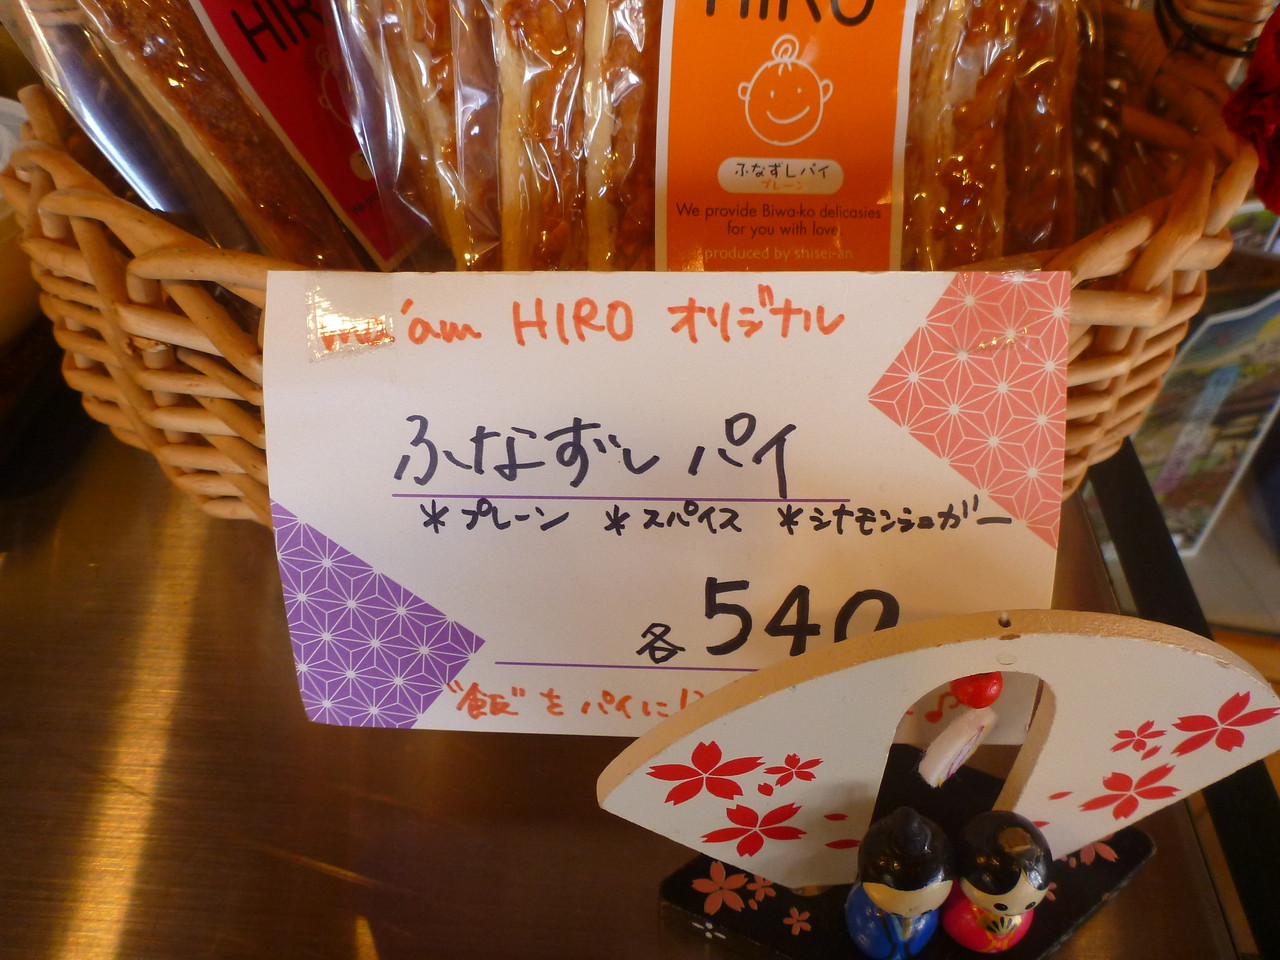 HIRO
HIRO
ふなずしパイ
プレーン
We provide Biwa-ko delicasies
for you with love.
produced by shisei-an
ma'am HIRO オリジナル
ふなずしパイ
*プレーン *スパイス *シナモンシュガー
各540
"飯"をパイに